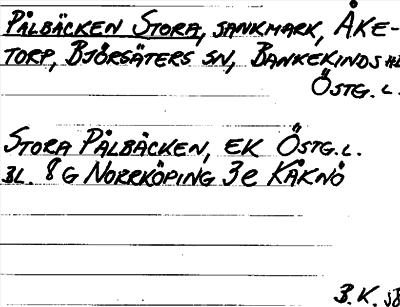 PÅLBÄCKEN STORA, SANKMARK, ÅKE-
TORP, BJÖRSÄTERS SN, BANKEKINDS HD
ÖSTG. L.
STORA PÅLBÄCKEN, EK ÖSTG. L.
BL. 8 G NORRKÖPING 3e KÅKNÖ
B.K.